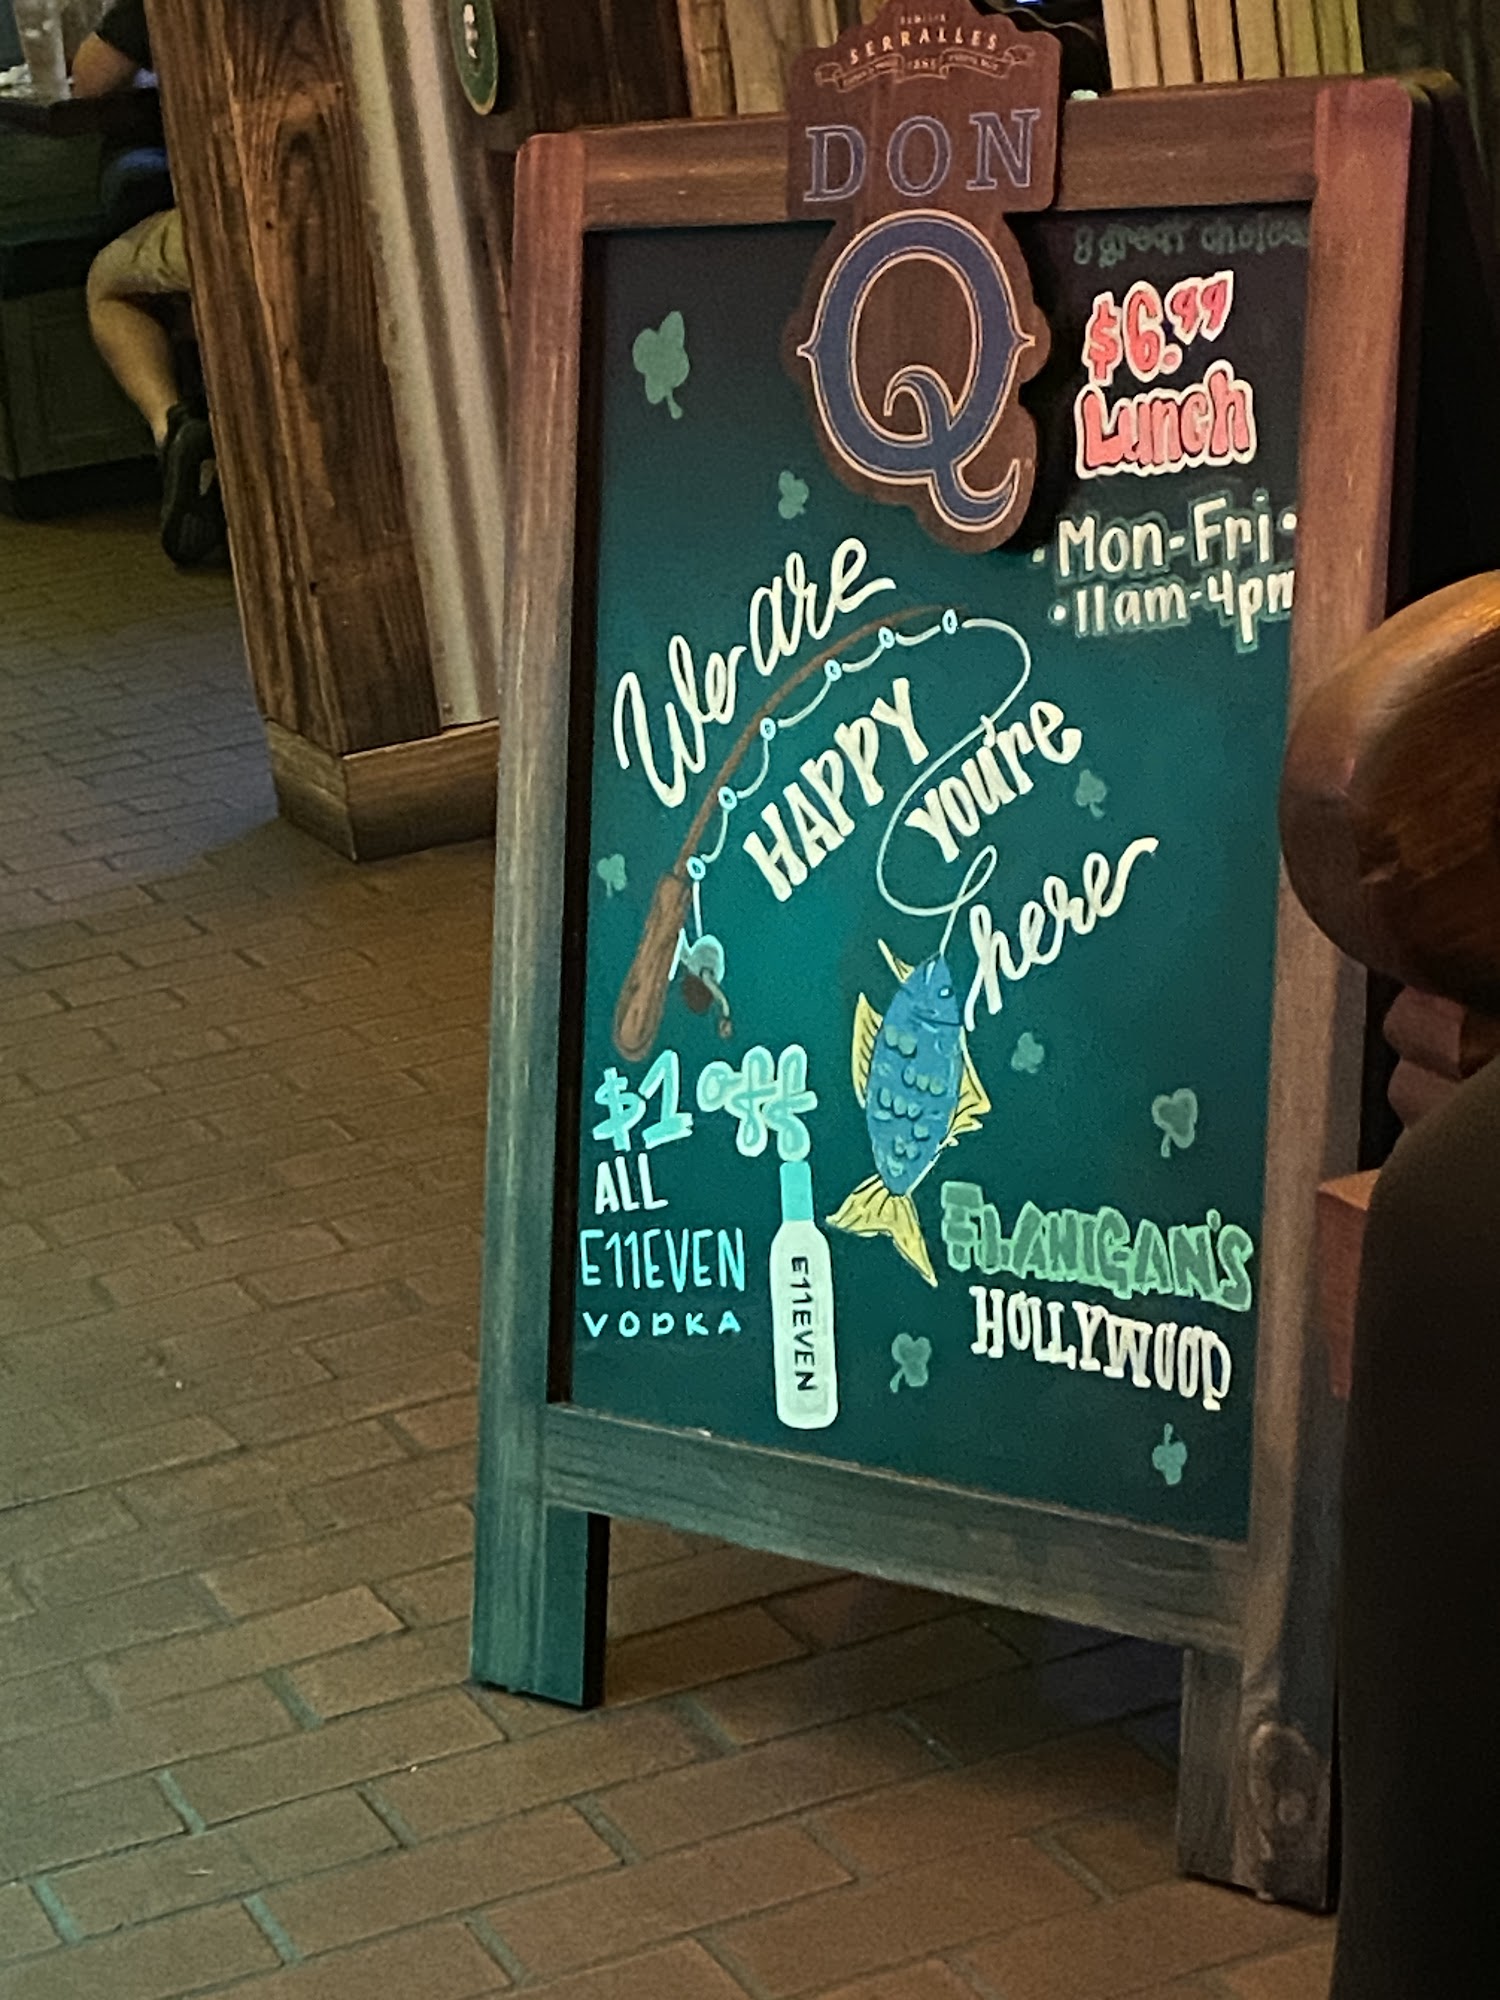 SERRALLES
DON
Q
8 great choices
$6.99
Lunch
• Mon-Fri •
• 11am-4pm
We are
HAPPY
you're
here
$1 off
ALL
E11EVEN
VODKA
E11EVEN
FLANIGAN'S
HOLLYWOOD